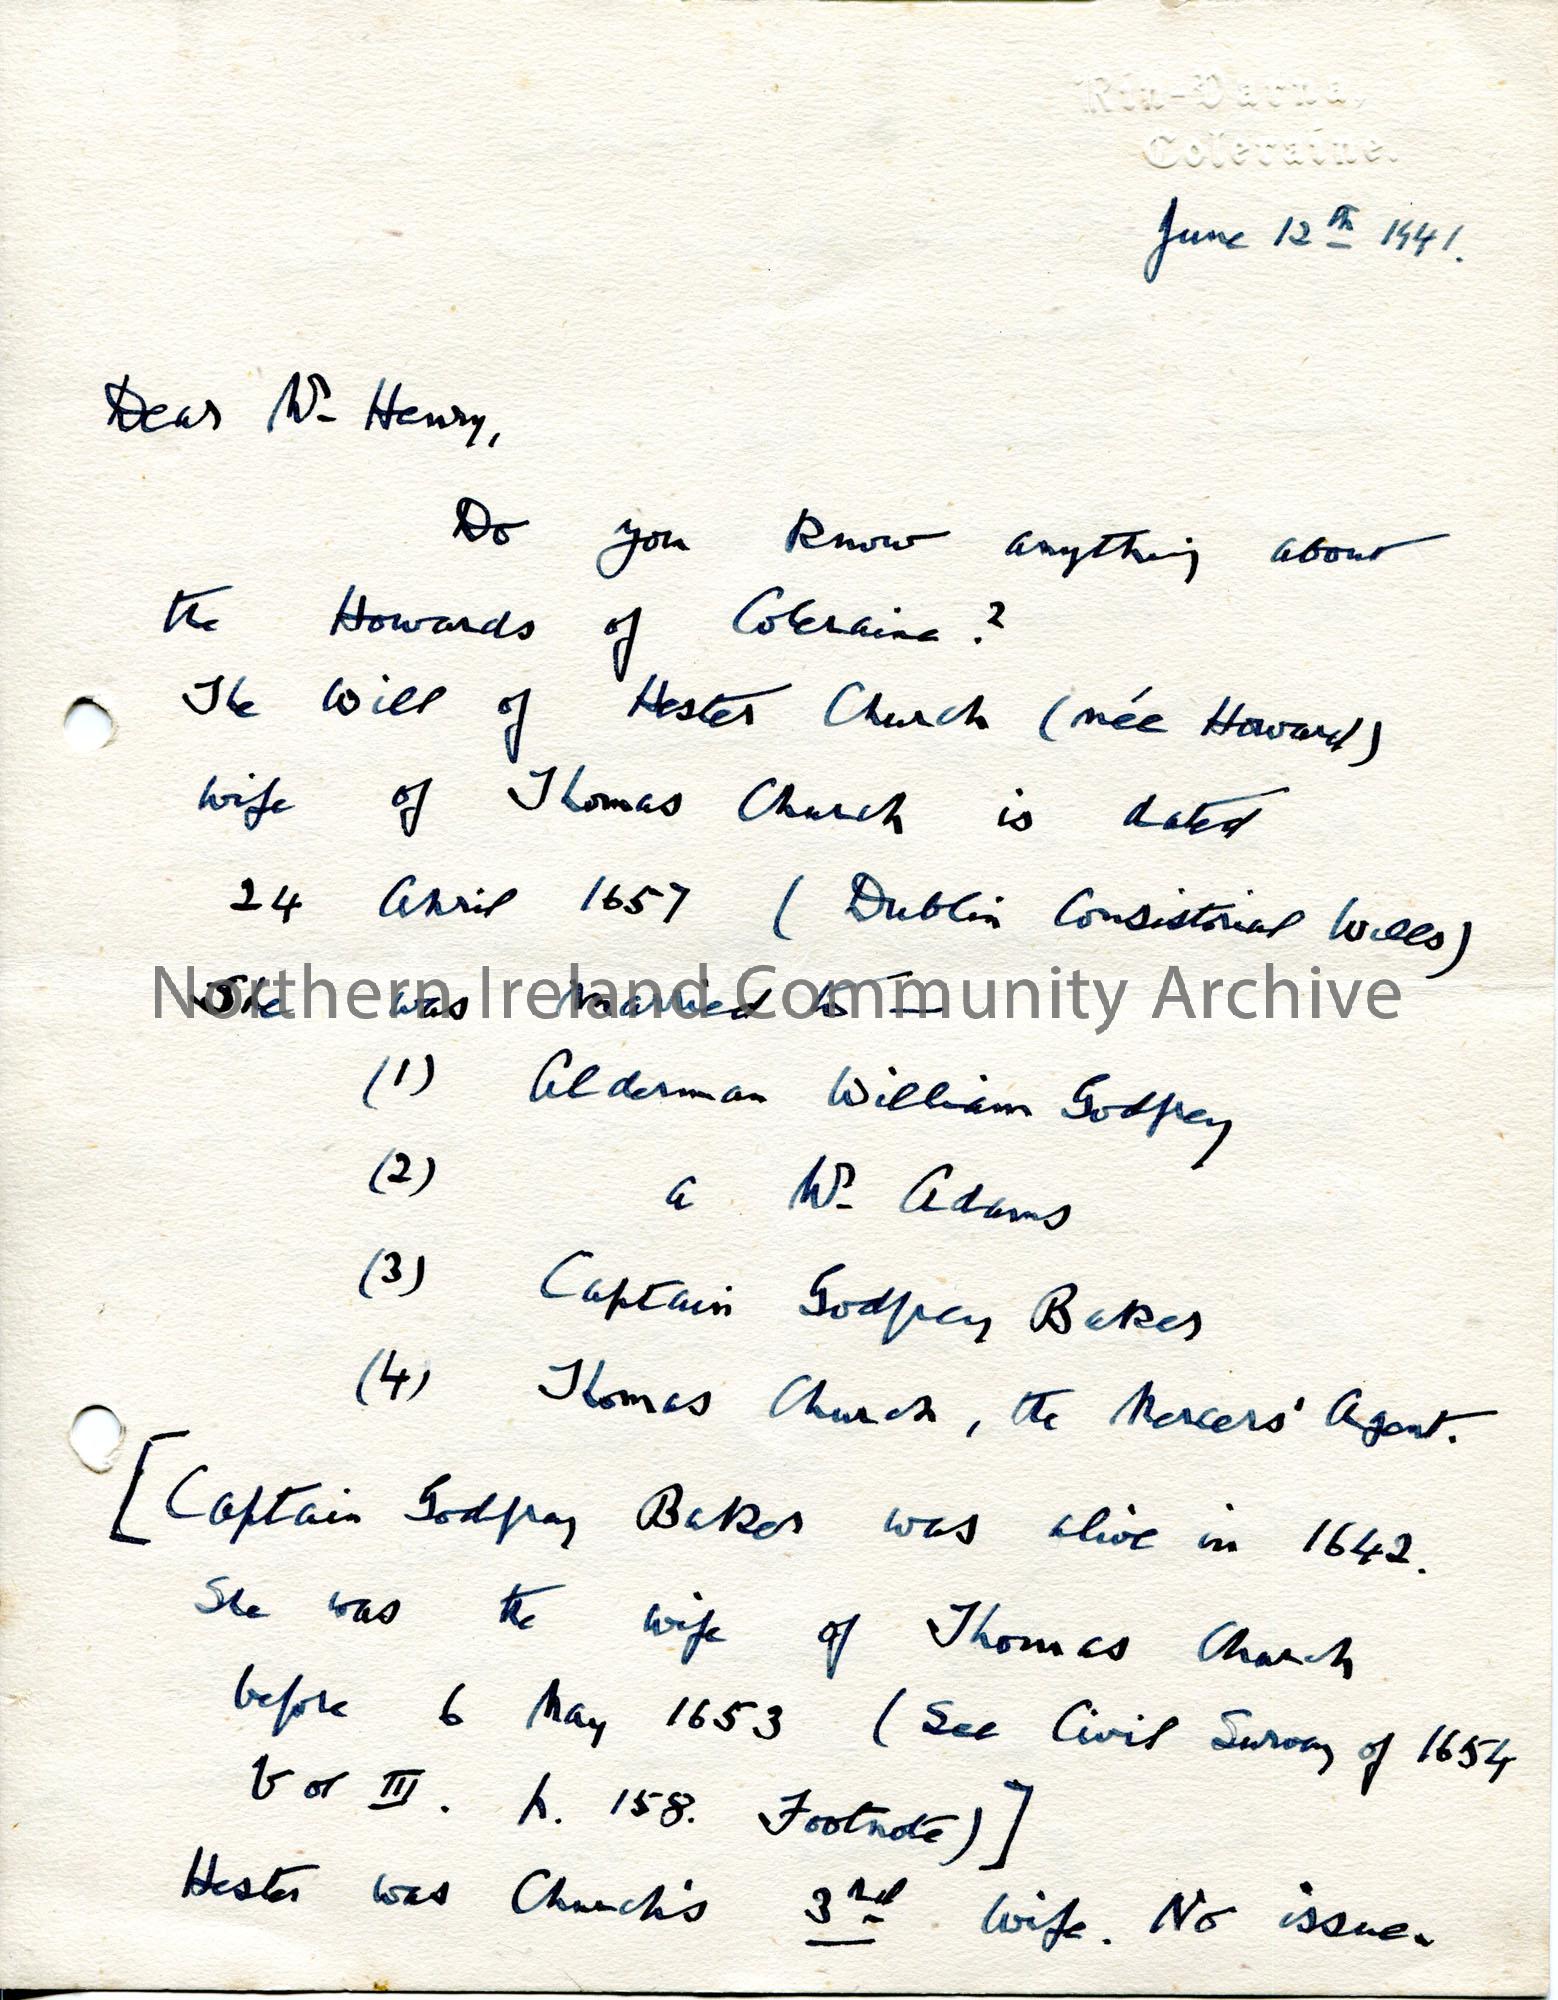 Rin-Varna,
Coleraine.
June 12th 1941.
Dear Mr Henry,
Do you know anything about
the Howards of Coleraine?
The Will of Hester Church (née Howard)
wife of Thomas Church is dated
24 April 1657 (Dublin Consistorial Wills)
She was married to —
Northern Ireland Community Archive
(1) Alderman William Godfrey
(2) a Mr Adams
(3) Captain Godfrey Baker
(4) Thomas Church, the Mercers' Agent.
[Captain Godfrey Baker was alive in 1642.
She was the wife of Thomas Church
before 6 May 1653 (See Civil Survey of 1654
Vol III. p. 158. Footnote)]
Hester was Church's 3rd wife. No issue.